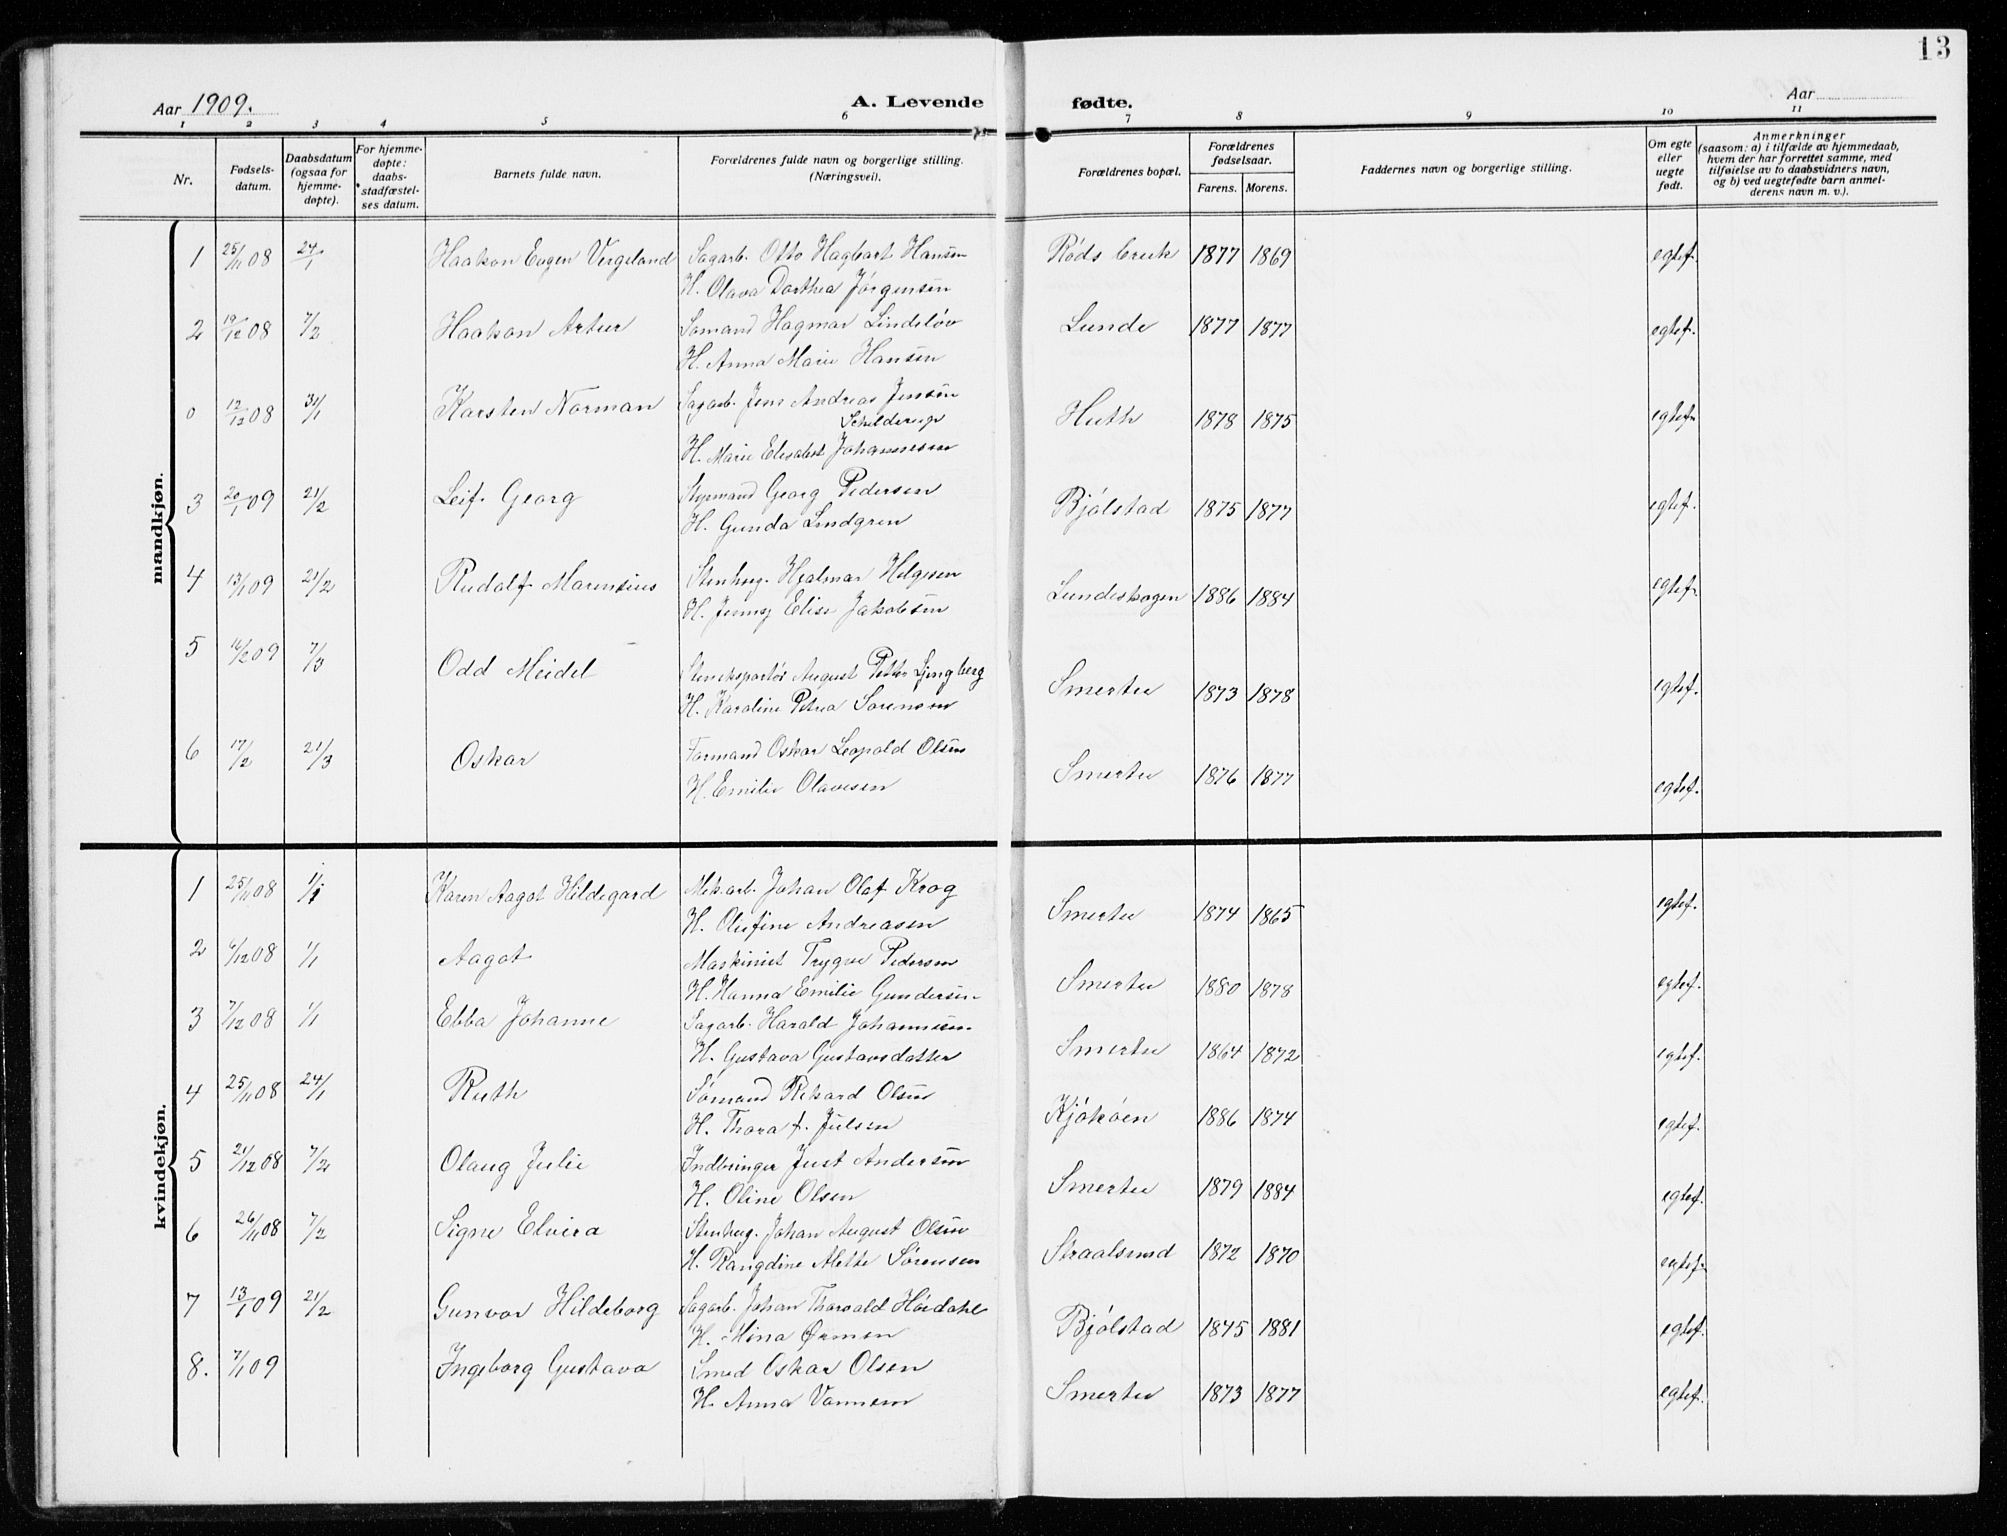 13
Aar 1909.
A. Levende fødte.
Aar
1 2 3 4 5 6 7 8 9 10 11
Nr.
Fødsels-
datum.
Daabsdatum
(ogsaa for
hjemme-
døpte).
For hjemme-
døpte:
daabs-
stadfæstel-
ses datum.
Barnets fulde navn.
Forældrenes fulde navn og borgerlige stilling.
(Næringsvei).
Forældrenes bopæl.
Forældrenes
fødselsaar.
Farens. Morens.
Faddernes navn og borgerlige stilling.
Om egte
eller
uegte
født.
Anmerkninger
(saasom: a) i tilfælde av hjemmedaab,
hvem der har forrettet samme, med
tilføielse av to daabsvidners navn,
og b) ved uegtefødte barn anmel-
derens navn m. v.).
mandkjøn.
1 25/11 08 24/1 Haakon Eugen Vergeland Sagarb. Otto Hagbart Hansen Røds bruk 1877 1869 egtef.
H. Olava Dorthea Jørgensen
2 19/12 08 7/2 Haakon Artur Sømand Hagmar Lindeløv Lunde 1877 1877 egtef.
H. Anna Marie Hansen
0 12/12 08 31/1 Karsten Norman Sagarb. Jens Andreas Jensen Huth 1878 1875 egtef.
Schilderup
H. Marie Elisabet Johannesen
3 20/1 09 21/2 Leif Georg Styrmand Georg Pedersen Bjølstad 1875 1877 egtef.
H. Gunda Lindgren
4 13/1 09 21/2 Rudolf Marensius Stenhug. Hjalmar Helgesen Lundeskogen 1886 1884 egtef.
H. Jenny Elise Jakobsen
5 16/2 09 7/3 Odd Meidel August Petter Ljungberg Smertu 1873 1878 egtef.
H. Karoline Petrea Sørensen
6 17/2 21/3 Oskar Formand Oskar Leopold Olsen Smertu 1876 1877 egtef.
H. Emilie Olavesen
kvindekjøn.
1 25/11 08 1/1 Karen Aagot Hildegard Mek.arb. Johan Olaf Krog Smertu 1874 1865 egtef.
H. Olefine Andreasen
2 6/12 08 1/1 Aagot Maskinist Trygve Pedersen Smertu 1880 1878 egtef.
H. Hanna Emilie Gundersen
3 7/12 08 1/1 Ebba Johanne Sagarb. Harald Johannesen Smertu 1864 1872 egtef.
H. Gustava Gustavsdatter
4 25/11 08 24/1 Ruth Sømand Rikard Olsen Kjøkøen 1886 1874 egtef.
H. Thora f. Julsen
5 21/12 08 7/2 Olaug Julie Indbringer Just Andersen Smertu 1879 1884 egtef.
H. Oline Olsen
6 26/11 08 7/2 Signe Elvira Stenhug. Johan August Olsen Straalsund 1872 1870 egtef.
H. Rangdine Alette Sørensen
7 13/1 09 21/2 Gunvor Hildeborg Sagarb. Johan Thorvald Hørdahl Bjølstad 1875 1881 egtef.
H. Mina Ørmen
8. 7/1 09 Ingeborg Gustava Smed Oskar Olsen Smertu 1873 1877 egtef.
H. Anna Vonnsen